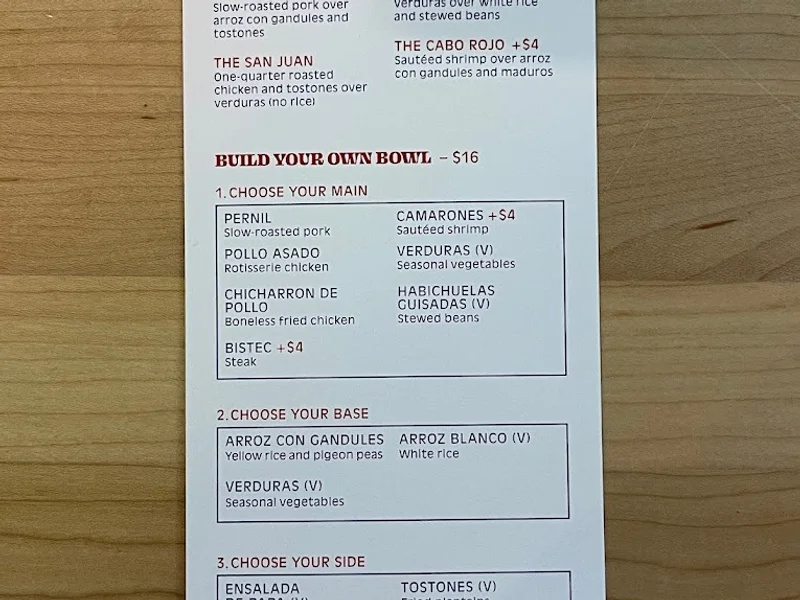 Slow-roasted pork over
arroz con gandules and
tostones
THE SAN JUAN
One-quarter roasted
chicken and tostones over
verduras (no rice)
Verduras over white rice
and stewed beans
THE CABO ROJO +$4
Sautéed shrimp over arroz
con gandules and maduros
BUILD YOUR OWN BOWL – $16
1. CHOOSE YOUR MAIN
PERNIL
Slow-roasted pork
POLLO ASADO
Rotisserie chicken
CHICHARRON DE
POLLO
Boneless fried chicken
BISTEC +$4
Steak
CAMARONES +$4
Sautéed shrimp
VERDURAS (V)
Seasonal vegetables
HABICHUELAS
GUISADAS (V)
Stewed beans
2. CHOOSE YOUR BASE
ARROZ CON GANDULES
Yellow rice and pigeon peas
VERDURAS (V)
Seasonal vegetables
ARROZ BLANCO (V)
White rice
3. CHOOSE YOUR SIDE
ENSALADA
DE PAPA (V)
TOSTONES (V)
Fried plantains